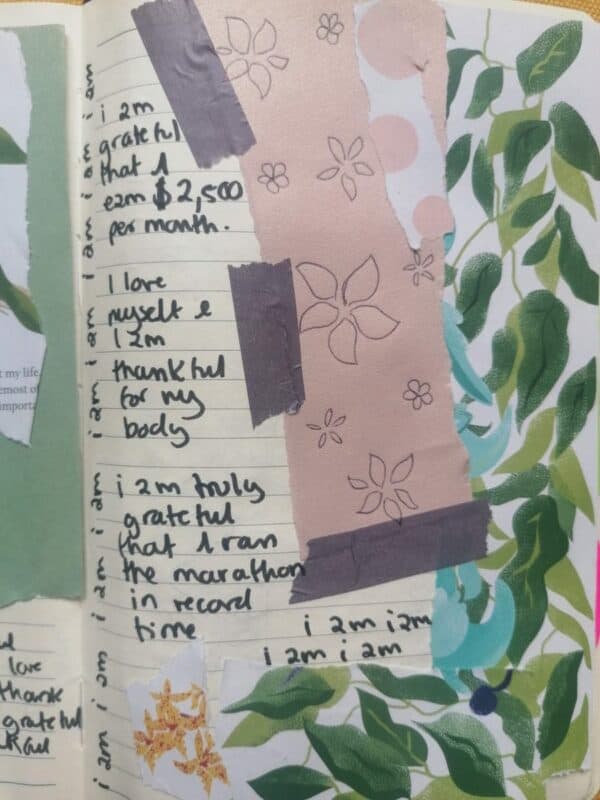 t my life,
emost of
importa
love
thank
grateful
i am i am i am i am i am i am i am i am i am
i am
grateful
that I
earn $2,500
per month.
I love
myself &
I am
thankful
for my
body
i am truly
grateful
that I ran
the marathon
in record
time
i am i am
i am i am